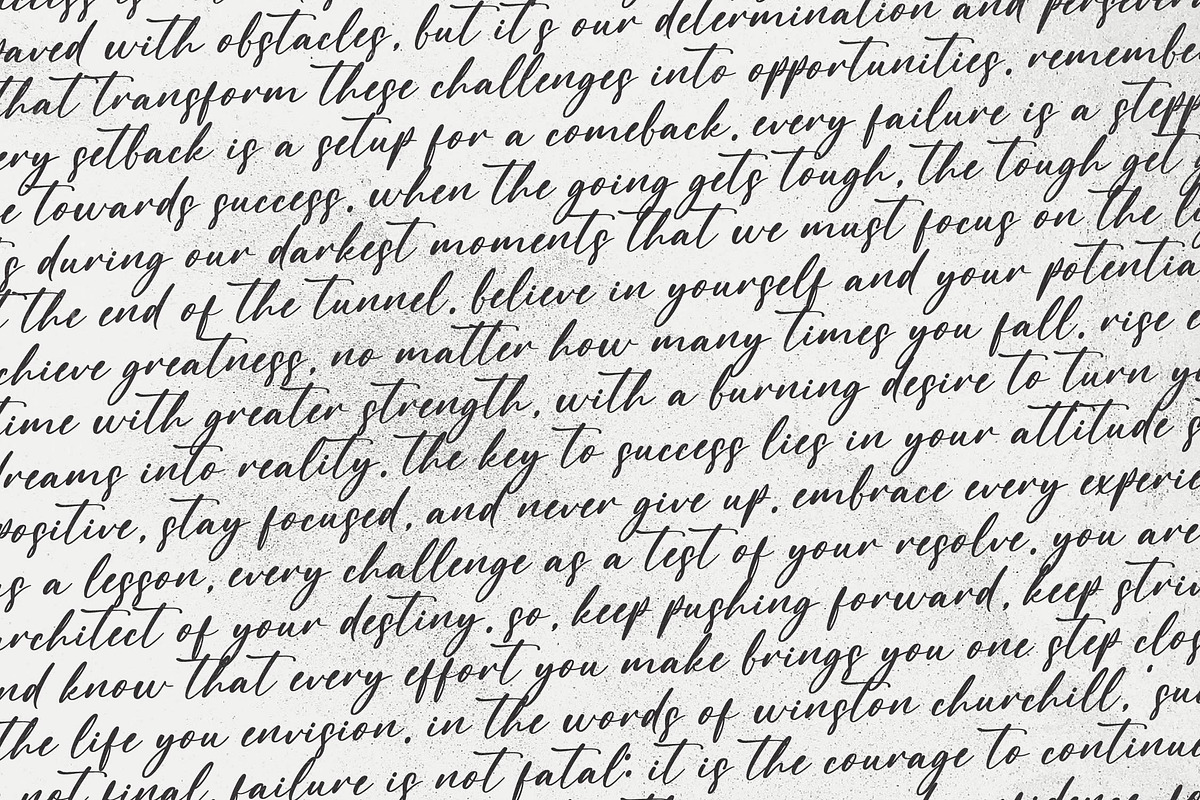 paved with obstacles, but it's our determination and
that transform these challenges into opportunities. remember
setback is a setup for a comeback. every failure is a
towards success. when the going gets tough, the tough get
during our darkest moments that we must focus on the
the end of the tunnel. believe in yourself and your
greatness. no matter how many times you fall, rise
time with greater strength, with a burning desire to turn
into reality. the key to success lies in your attitude
positive, stay focused, and never give up. embrace every
a lesson, every challenge as a test of your resolve. you are
architect of your destiny. so, keep pushing forward, keep
know that every effort you make brings you one step
the life you envision. in the words of winston churchill, '
not final, failure is not fatal: it is the courage to